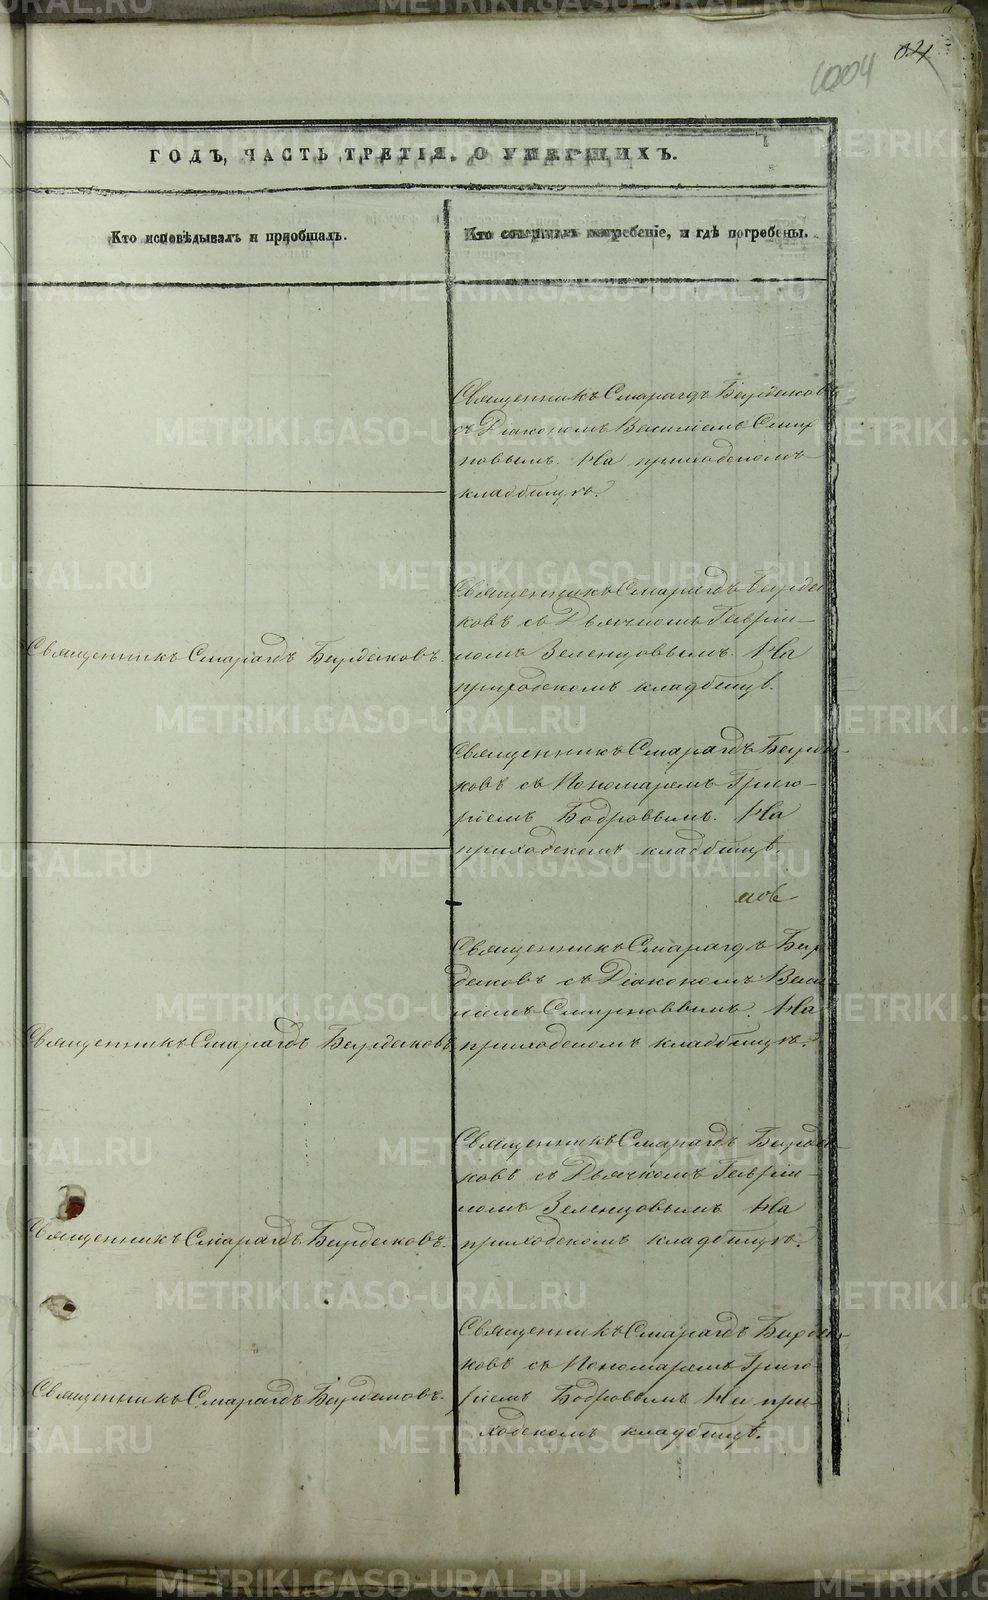 1004
ГОДЪ, ЧАСТЬ ТРЕТІЯ. О УМЕРШИХЪ.
Кто исповѣдывалъ и пріобщалъ.
Кто совершалъ погребеніе, и гдѣ погребены.
Священникъ Смарагдъ Бурдаковъ
съ Діакономъ Василіемъ Смир
новымъ. На приходскомъ
кладбищѣ.
Священникъ Смарагдъ Бурда
ковъ съ Дьячкомъ Гавріи-
ломъ Зеленцовымъ. На
приходскомъ кладбищѣ.
Священникъ Смарагдъ Бурдаковъ.
Священникъ Смарагдъ Бурда-
ковъ съ Пономаремъ Григо-
ріемъ Бодровымъ. На
приходскомъ кладбищѣ.
Священникъ Смарагдъ Бур
даковъ съ Діакономъ Васи
ліемъ Смирновымъ. На
приходскомъ кладбищѣ.
Священникъ Смарагдъ Бурдаковъ
Священникъ Смарагдъ Бурда-
ковъ съ Дьячкомъ Гавріи-
ломъ Зеленцовымъ На
приходскомъ кладбищѣ.
Священникъ Смарагдъ Бурдаковъ.
Священникъ Смарагдъ Бурда-
ковъ съ Пономаремъ Григо-
ріемъ Бодровымъ На при-
ходскомъ кладбищѣ.
Священникъ Смарагдъ Бурдаковъ.
METRIKI.GASO-URAL.RU